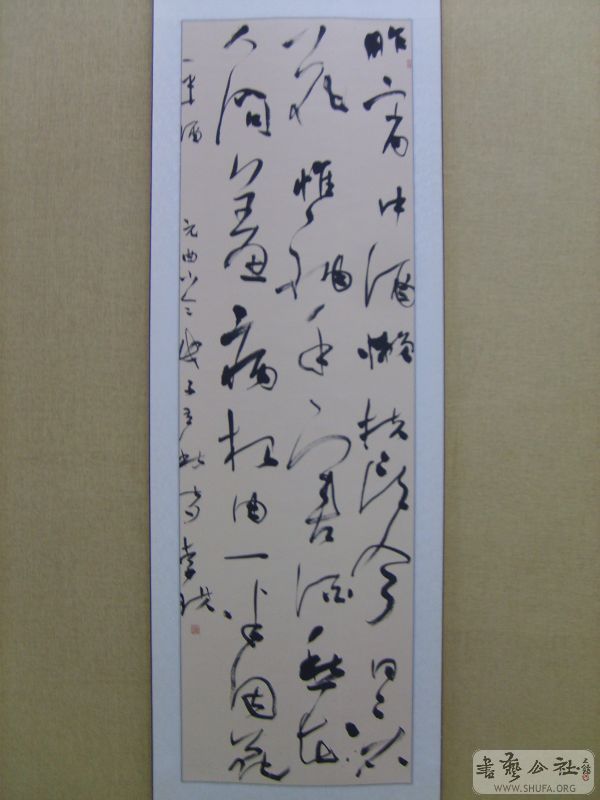 昨宵中酒懒扶头今日
花惟袖手害酒愁花
人问羞病根由一半因花
一半酒 元曲小令
書藝公社
WWW.SHUFA.ORG